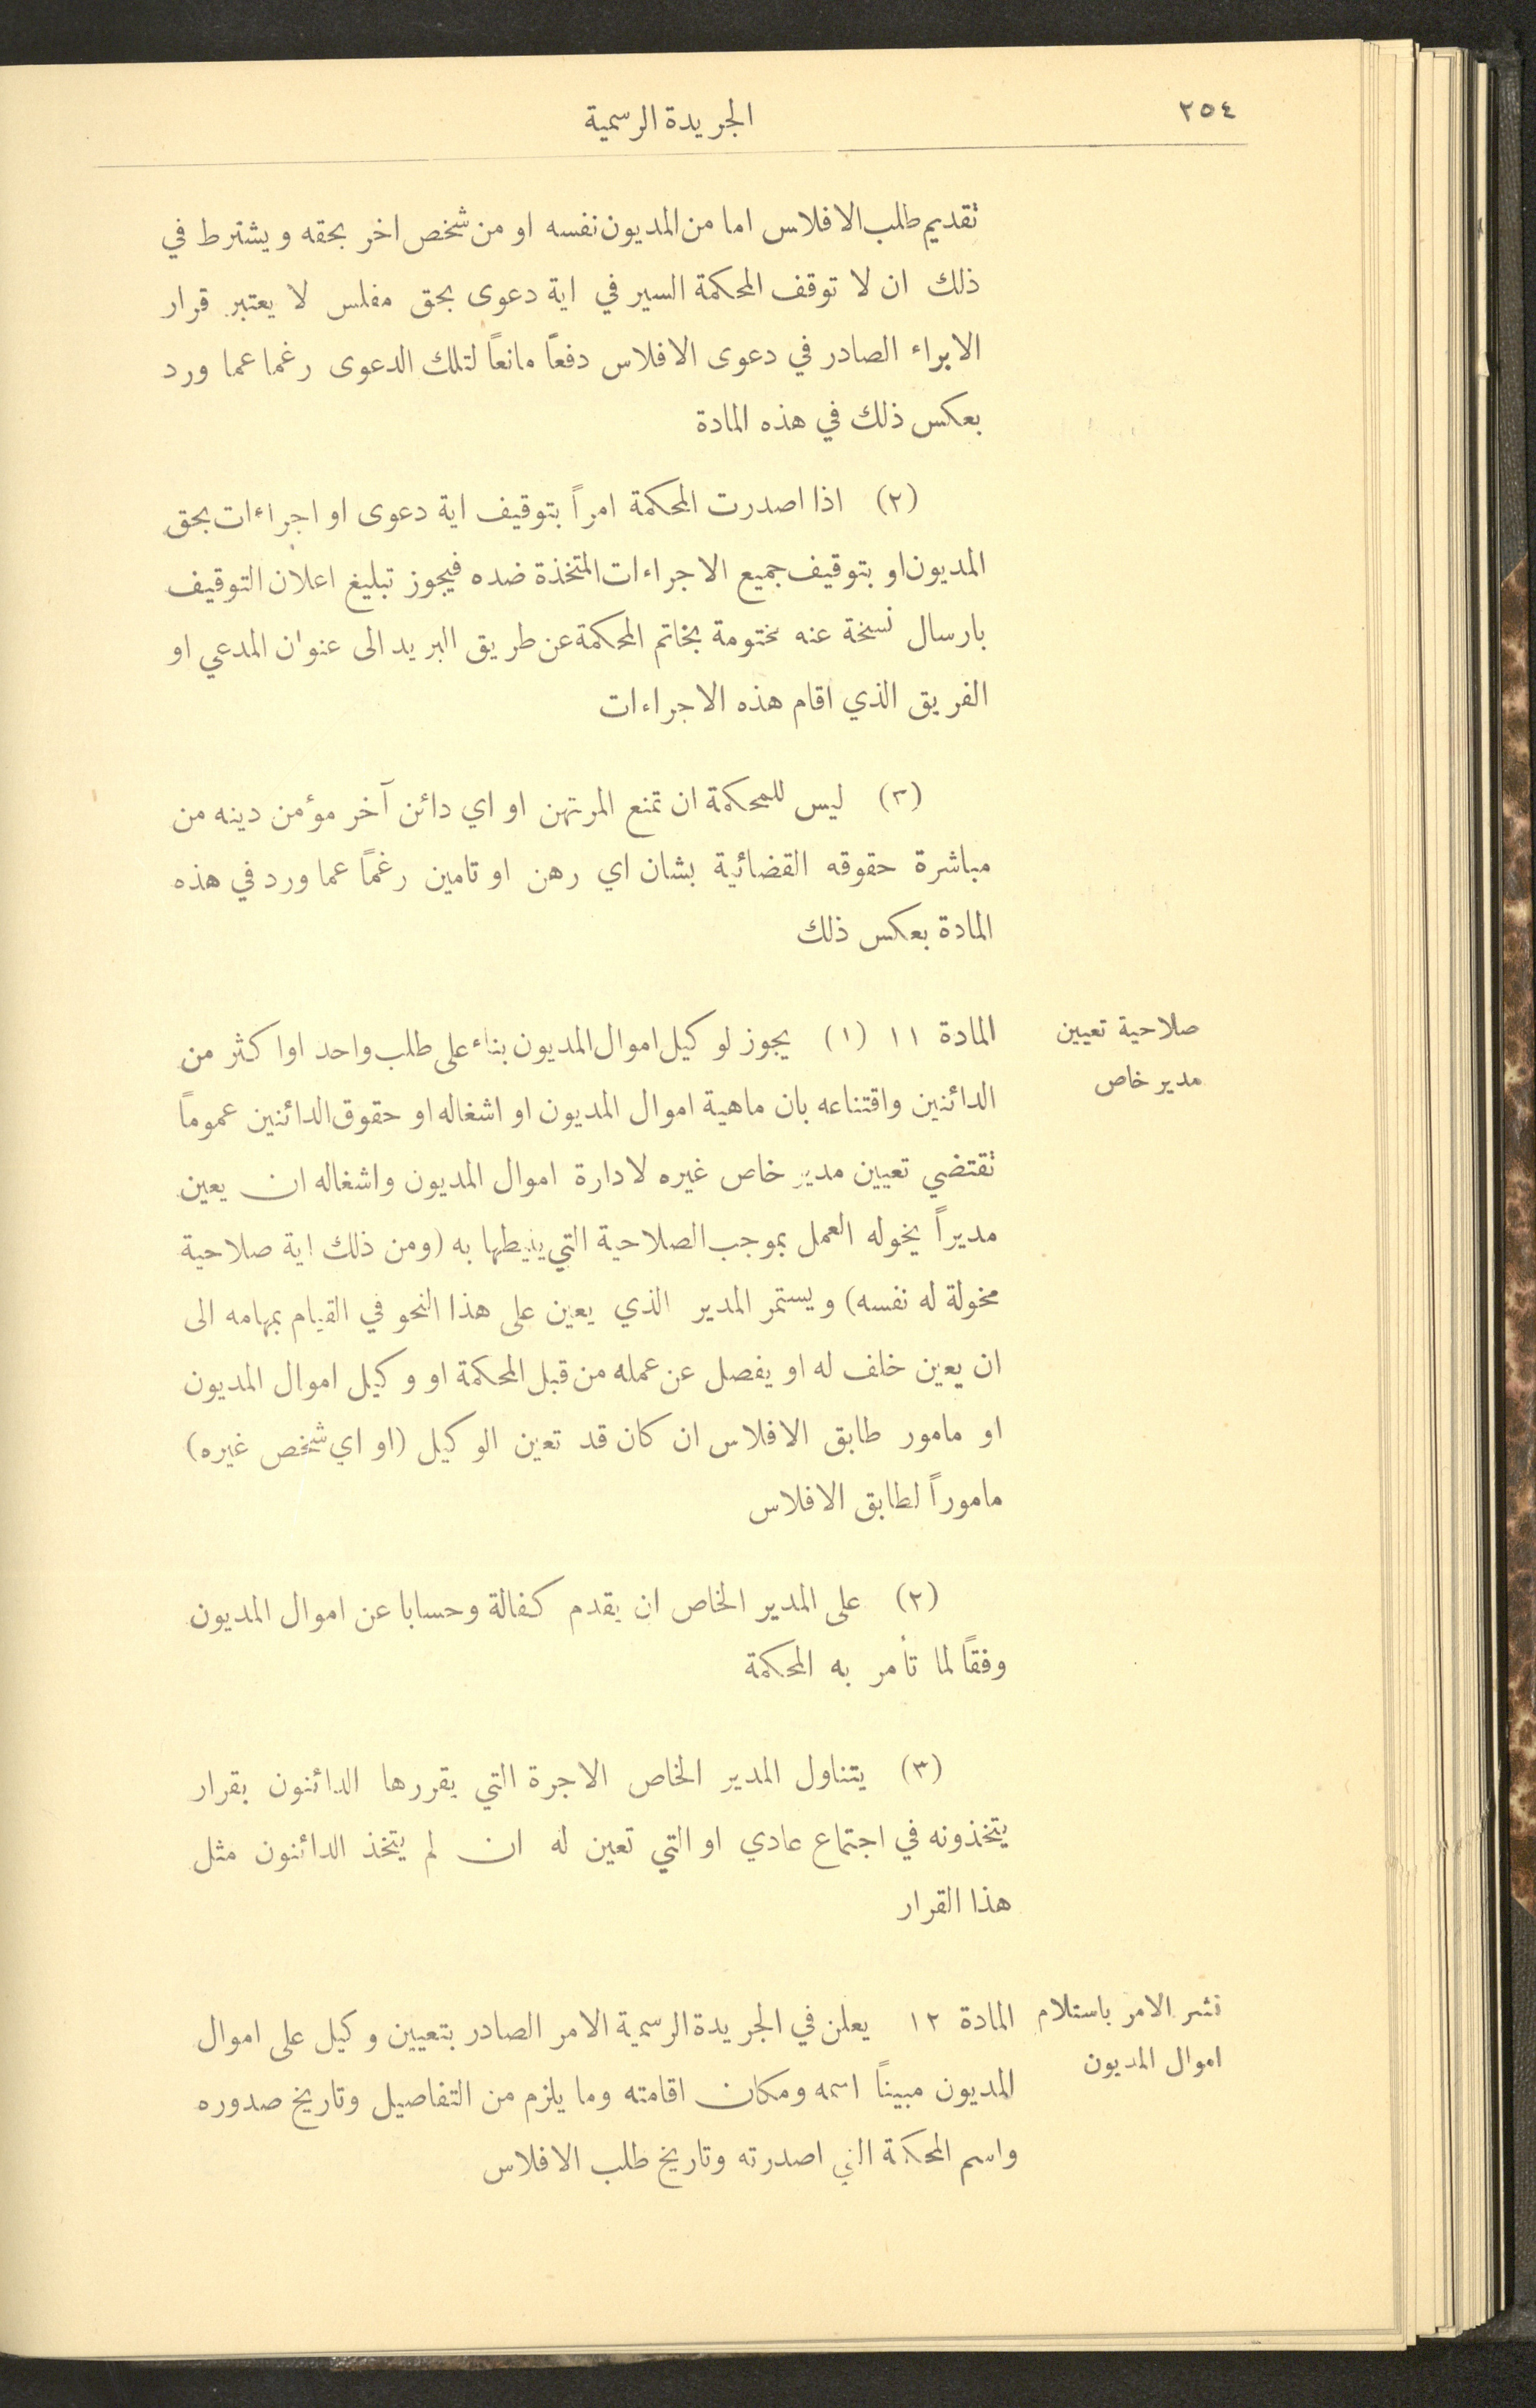 ٢٥٤
الجريدة الرسمية
تقديم طلب الافلاس اما من المديون نفسه او من شخص اخر بحقه ويشترط في
ذلك ان لا توقف المحكمة السير في اية دعوى بحق مفلس لا يعتبر قرار
الابراء الصادر في دعوى الافلاس دفعاً مانعاً لتلك الدعوى رغما عما ورد
بعكس ذلك في هذه المادة
(٢) اذا اصدرت المحكمة امراً بتوقيف اية دعوى او اجراءات بحق
المديون او بتوقيف جميع الاجراءات المتخذة ضده فيجوز تبليغ اعلان التوقيف
بارسال نسخة عنه مختومة بخاتم المحكمة عن طريق البريد الى عنوان المدعي او
الفريق الذي اقام هذه الاجراءات
(٣) ليس للمحكمة ان تمنع المرتهن او اي دائن آخر مؤمن دينه من
مباشرة حقوقه القضائية بشان اي رهن او تامين رغماً عما ورد في هذه
المادة بعكس ذلك
صلاحية تعيين
مدير خاص
المادة ١١ (١) يجوز لوكيل اموال المديون بناء على طلب واحد او اكثر من
الدائنين واقتناعه بان ماهية اموال المديون او اشغاله او حقوق الدائنين عموماً
تقتضي تعيين مدير خاص غيره لادارة اموال المديون واشغاله ان يعين
مديراً يخوله العمل بموجب الصلاحية التي ينيطها به (ومن ذلك اية صلاحية
مخولة له نفسه) ويستمر المدير الذي يعين على هذا النحو في القيام بمهامه الى
ان يعين خلف له او يفصل عن عمله من قبل المحكمة او وكيل اموال المديون
او مامور طابق الافلاس ان كان قد تعين الوكيل (او اي شخص غيره)
ماموراً لطابق الافلاس
(٢) على المدير الخاص ان يقدم كفالة وحسابا عن اموال المديون
وفقاً لما تأمر به المحكمة
(٣) يتناول المدير الخاص الاجرة التي يقررها الدائنون بقرار
يتخذونه في اجتماع عادي او التي تعين له ان لم يتخذ الدائنون مثل
هذا القرار
نشر الامر باستلام
اموال المديون
المادة ١٢ يعلن في الجريدة الرسمية الامر الصادر بتعيين وكيل على اموال
المديون مبيناً اسمه ومكان اقامته وما يلزم من التفاصيل وتاريخ صدوره
واسم المحكمة التي اصدرته وتاريخ طلب الافلاس